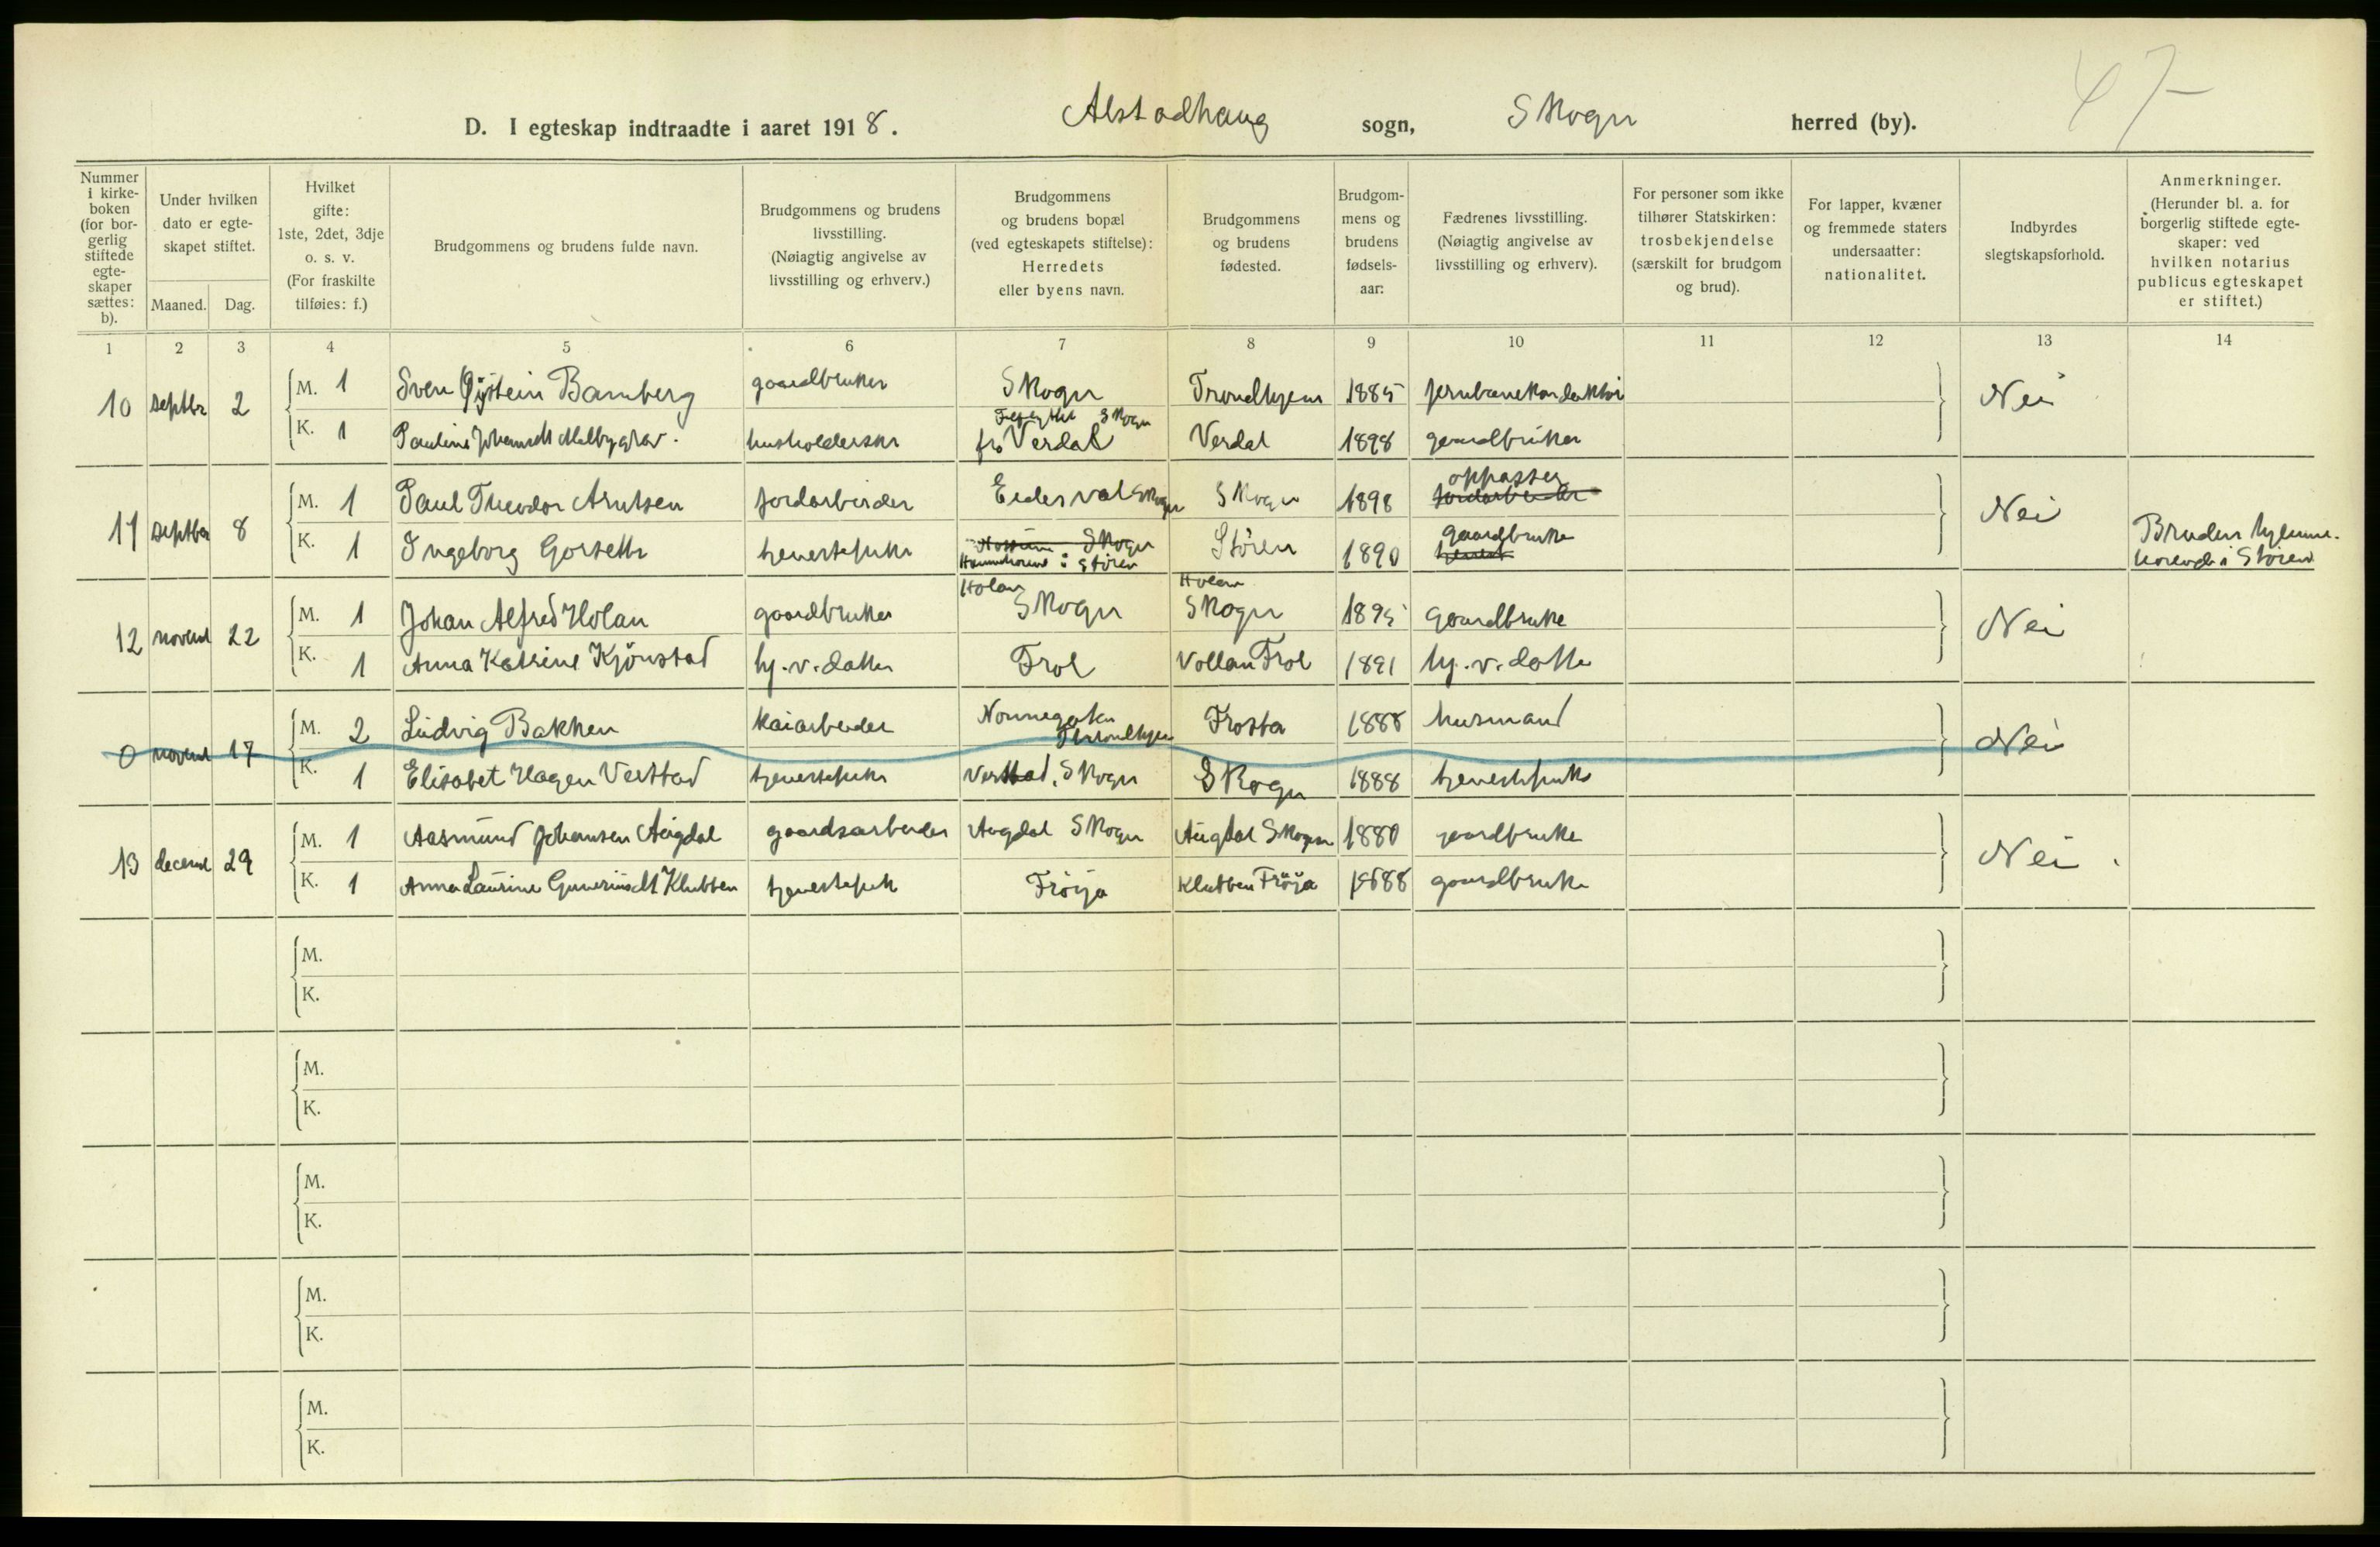 47
D. I egteskap indtraadte i aaret 1918. Alstadhaug sogn, Skogn herred (by).
Nummer i kirke- boken (for bor- gerlig stiftede egte- skaper sættes: b).
Under hvilken dato er egte- skapet stiftet.
Maaned. Dag.
Hvilket gifte: 1ste, 2det, 3dje o. s. v. (For fraskilte tilføies: f.)
Brudgommens og brudens fulde navn.
Brudgommens og brudens livsstilling. (Nøiagtig angivelse av livsstilling og erhverv.)
Brudgommens og brudens bopæl (ved egteskapets stiftelse): Herredets eller byens navn.
Brudgommens og brudens fødested.
Brudgom- mens og brudens fødsels- aar:
Fædrenes livsstilling. (Nøiagtig angivelse av livsstilling og erhverv).
For personer som ikke tilhører Statskirken: trosbekjendelse (særskilt for brudgom og brud).
For lapper, kvæner og fremmede staters undersaatter: nationalitet.
Indbyrdes slegtskapsforhold.
Anmerkninger. (Herunder bl. a. for borgerlig stiftede egte- skaper: ved hvilken notarius publicus egteskapet er stiftet.)
1 2 3 4 5 6 7 8 9 10 11 12 13 14
10 septbr 2 M. 1 Sven Øystein Bamberg gaardbruker Skogn Trondhjem 1885 jernbanekonduktør Nei
K. 1 Pauline Johansdt Melbygrav. husholderske Skogn fra Verdal Verdal 1898 gaardbruker
11 septbr 8 M. 1 Paul Theodor Arntsen jordarbeider Eidesval Skogn Skogn 1898 oppasser jordarbeider Nei
K. 1 Ingeborg Gorseth tjenestepike Skogn i Støren Støren 1890 gaardbruke tjenest Brudens hjemme- i Støren
12 novemb 22 M. 1 Johan Alfred Holan gaardbruker Holan Skogn Holan Skogn 1895 gaardbruke Nei
K. 1 Anna Katrine Kjønstad hj. v. datter Frol Vollan Frol 1891 hj. v. datte
0 novemb 17 M. 2 Ludvig Bakken kaiarbeider Nonnegaten Throndhjem Frosta 1888 husmand Nei
K. 1 Elisabet Hagen Verstad tjenestepike Verstad, Skogn Skogn 1888 tjenestepike
13 decemb 29 M. 1 Aasmund Johansen Augdal gaardsarbeider Augdal Skogn Augdal Skogn 1880 gaardbruke Nei.
K. 1 Anna Laurine Guneriusdt Klubben tjenestepik Frøya Klubben Frøya 1888 gaardbruke
M.
K.
M.
K.
M.
K.
M.
K.
M.
K.